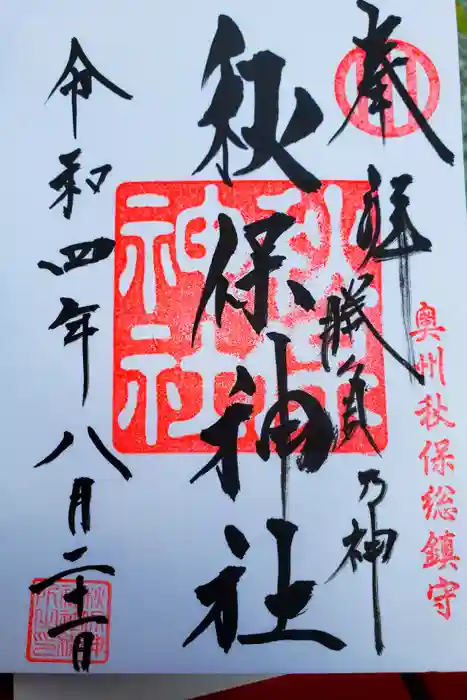 奉拝
勝負乃神
奥州秋保総鎮守
秋保神社
秋保神社
令和四年八月二十一日